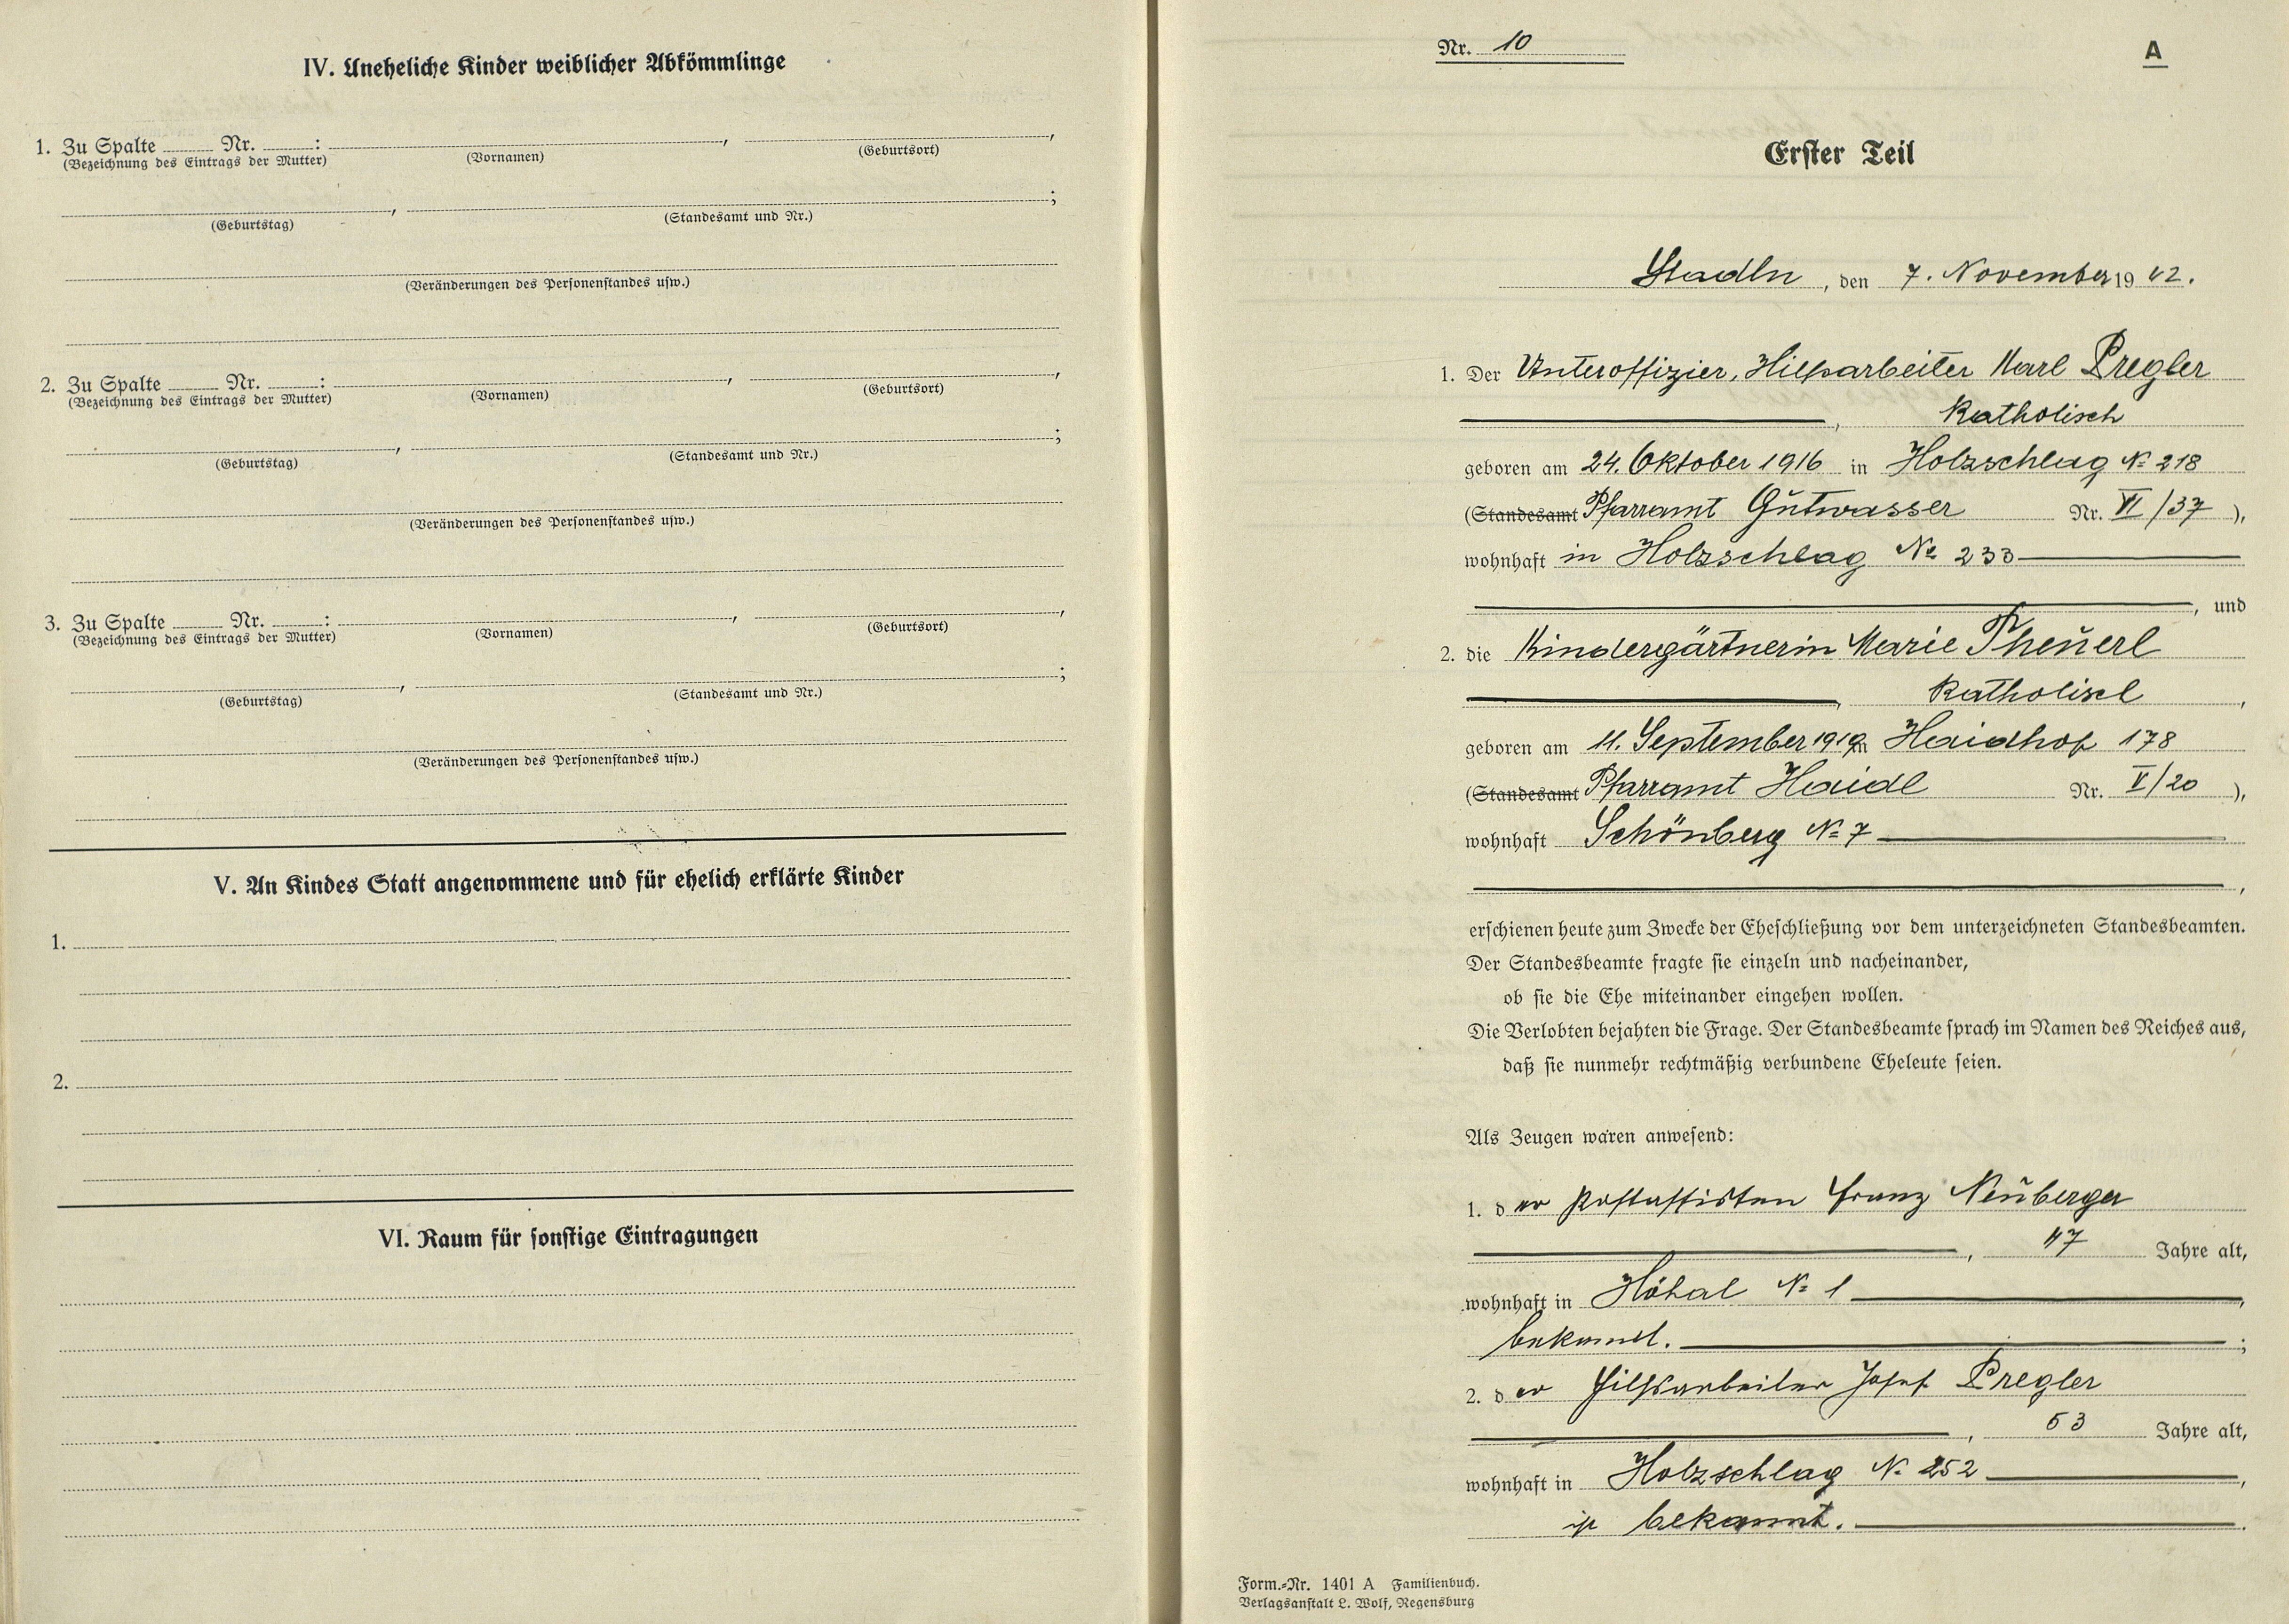 IV. Uneheliche Kinder weiblicher Abkömmlinge
1. Zu Spalte Nr. : , ,
(Bezeichnung des Eintrags der Mutter) (Vornamen) (Geburtsort)
, ;
(Geburtstag) (Standesamt und Nr.)
(Veränderungen des Personenstandes usw.)
2. Zu Spalte Nr. : , ,
(Bezeichnung des Eintrags der Mutter) (Vornamen) (Geburtsort)
, ;
(Geburtstag) (Standesamt und Nr.)
(Veränderungen des Personenstandes usw.)
3. Zu Spalte Nr. : , ,
(Bezeichnung des Eintrags der Mutter) (Vornamen) (Geburtsort)
, ;
(Geburtstag) (Standesamt und Nr.)
(Veränderungen des Personenstandes usw.)
V. An Kindes Statt angenommene und für ehelich erklärte Kinder
1.
2.
VI. Raum für sonstige Eintragungen
Nr. 10
A
Erster Teil
Stadln, den 7. November 1942.
1. Der Unteroffizier, Hilfsarbeiter Karl Pregler
, katholisch
geboren am 24. Oktober 1916 in Holzschlag No 218
(Standesamt Pfarramt Gutwasser Nr. VI/37),
wohnhaft in Holzschlag No 233
, und
2. die Kindergärtnerin Marie Theuerl
, katholisch,
geboren am 11. September 1919 in Haidhof 178
(Standesamt Pfarramt Haidl Nr. V/20),
wohnhaft Schönberg No 7
,
erschienen heute zum Zwecke der Eheschließung vor dem unterzeichneten Standesbeamten.
Der Standesbeamte fragte sie einzeln und nacheinander,
ob sie die Ehe miteinander eingehen wollen.
Die Verlobten bejahten die Frage. Der Standesbeamte sprach im Namen des Reiches aus,
daß sie nunmehr rechtmäßig verbundene Eheleute seien.
Als Zeugen waren anwesend:
1. der Postassistent Franz Neuberger
, 47 Jahre alt,
wohnhaft in Höhal No 1,
bekannt. ;
2. der Hilfsarbeiter Josef Pregler
, 53 Jahre alt,
wohnhaft in Holzschlag No 252,
ist bekannt.
Form.-Nr. 1401 A Familienbuch.
Verlagsanstalt L. Wolf, Regensburg